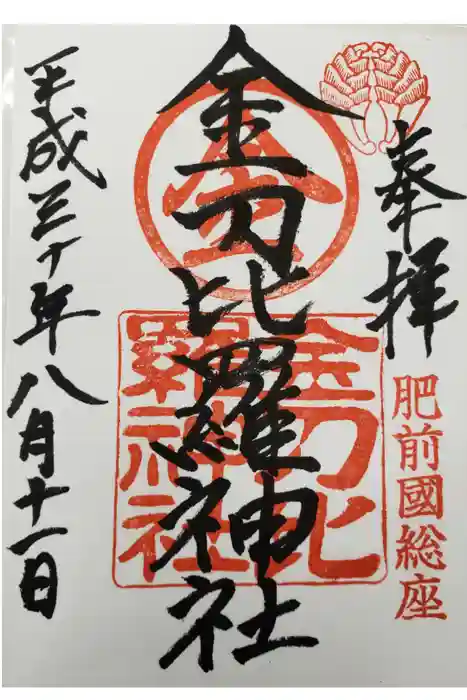 奉拝
肥前國総座
金
金刀比羅神社
金刀比
羅神社
平成三十年八月十一日